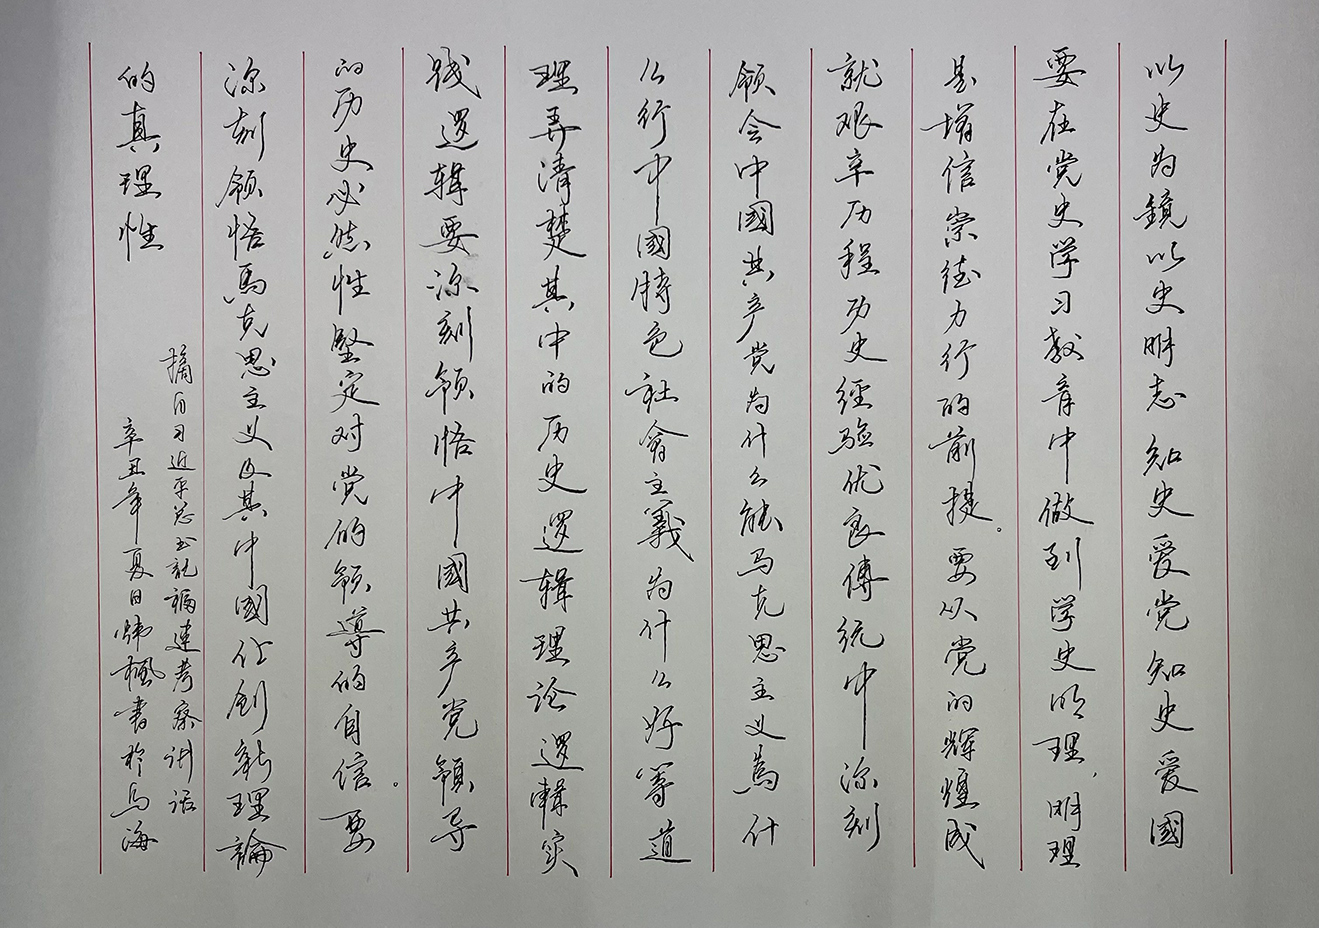 以史为鏡以史明志知史爱党知史爱國
要在党史学习教育中做到学史明理，明理
是增信崇德力行的前提。要从党的辉煌成
就艰辛历程历史经验优良傳统中深刻
领会中國共产党为什么能马克思主义為什
么行中國特色社會主義为什么好等道
理弄清楚其中的历史逻辑理论逻輯实
践逻辑要深刻领悟中國共产党領导
的历史必然性堅定对党的领導的自信。要
深刻领悟馬克思主义及其中國化创新理論
的真理性
摘自习近平总书記福建考察讲话
辛丑年夏日 楓書於乌海